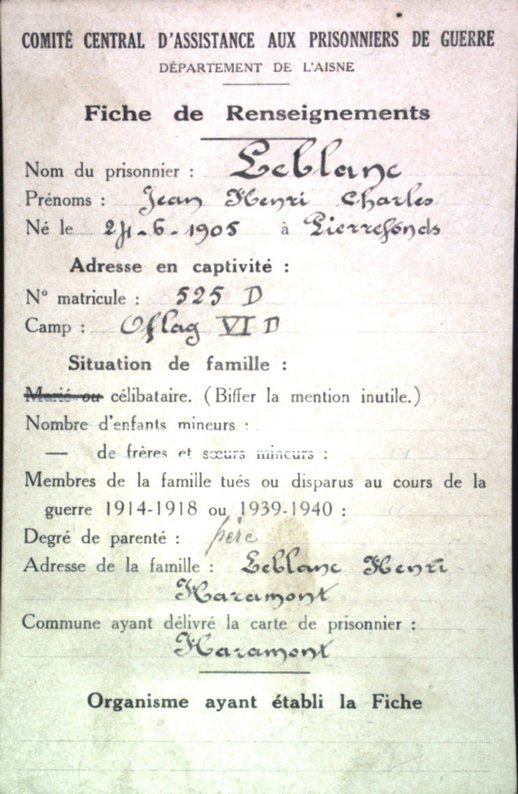 COMITÉ CENTRAL D'ASSISTANCE AUX PRISONNIERS DE GUERRE
DÉPARTEMENT DE L'AISNE
Fiche de Renseignements
Nom du prisonnier : Leblanc
Prénoms : Jean Henri Charles
Né le 24-6-1905 à Pierrefonds
Adresse en captivité :
N° matricule : 525 D
Camp : Oflag VI D
Situation de famille :
Marié ou célibataire. (Biffer la mention inutile.)
Nombre d'enfants mineurs :
— de frères et sœurs mineurs :
Membres de la famille tués ou disparus au cours de la
guerre 1914-1918 ou 1939-1940 :
Degré de parenté : père
Adresse de la famille : Leblanc Henri
Haramont
Commune ayant délivré la carte de prisonnier :
Haramont
Organisme ayant établi la Fiche